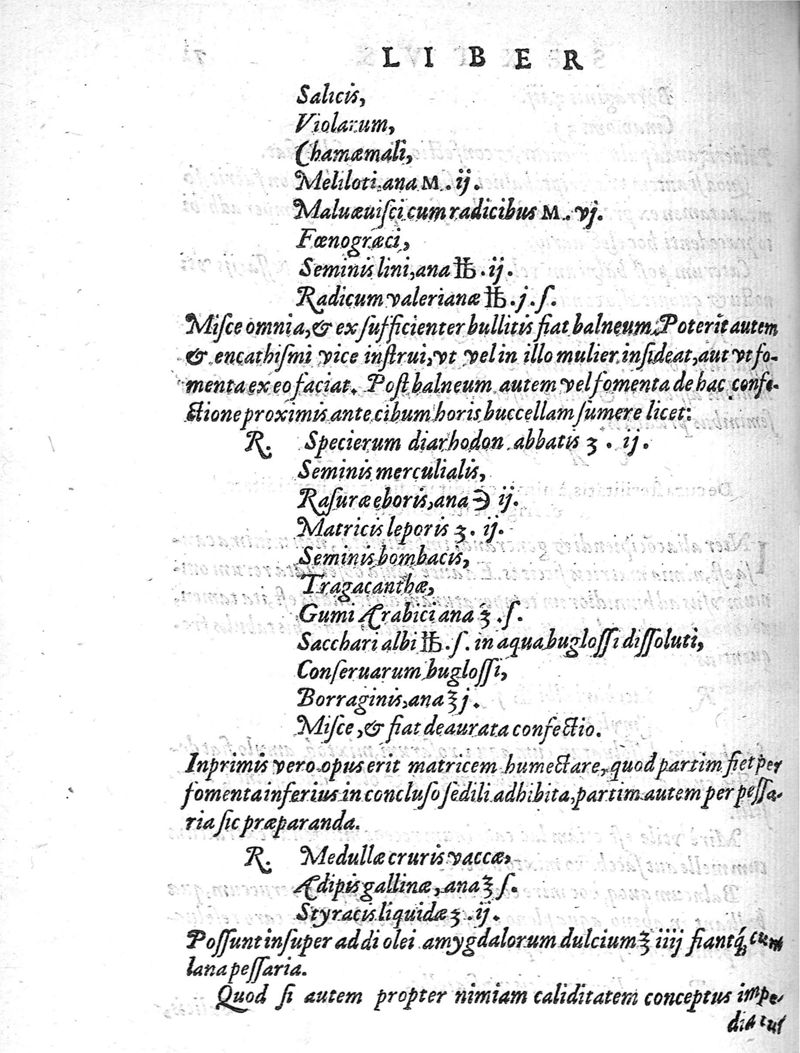 LIBER
Salicis,
Violarum,
Chamæmali,
Meliloti, ana M. ij.
Maluæuisci cum radicibus M. vj.
Fœnogræci,
Seminis lini, ana ℔. ij.
Radicum valerianæ ℔. j. ſ.
Misce omnia, & ex sufficienter bullitis fiat balneum. Poterit autem
& encathismi vice instrui, vt vel in illo mulier insideat, aut vt fo-
menta ex eo faciat. Post balneum autem vel fomenta de hac confe-
ctione proximis ante cibum horis buccellam sumere licet:
R. Specierum diarhodon abbatis ʒ. ij.
Seminis mercurialis,
Rasuræ eboris, ana ℈ ij.
Matricis leporis ʒ. ij.
Seminis bombacis,
Tragacanthæ,
Gumi Ærabici ana ℥. ſ.
Sacchari albi ℔. ſ. in aqua buglossi dissoluti,
Conseruarum buglossi,
Borraginis, ana ℥ j.
Misce, & fiat deaurata confectio.
Inprimis vero opus erit matricem humectare, quod partim fiet per
fomenta inferius in concluso sedili adhibita, partim autem per pessa-
ria sic præparanda.
R. Medullæ cruris vaccæ,
Ædipis gallinæ, ana ℥ ſ.
Styracis liquidæ ʒ. ij.
Possunt insuper addi olei amygdalorum dulcium ℥ iiij fiantq́; cum
lana pessaria.
Quod si autem propter nimiam caliditatem conceptus impe-
diatur